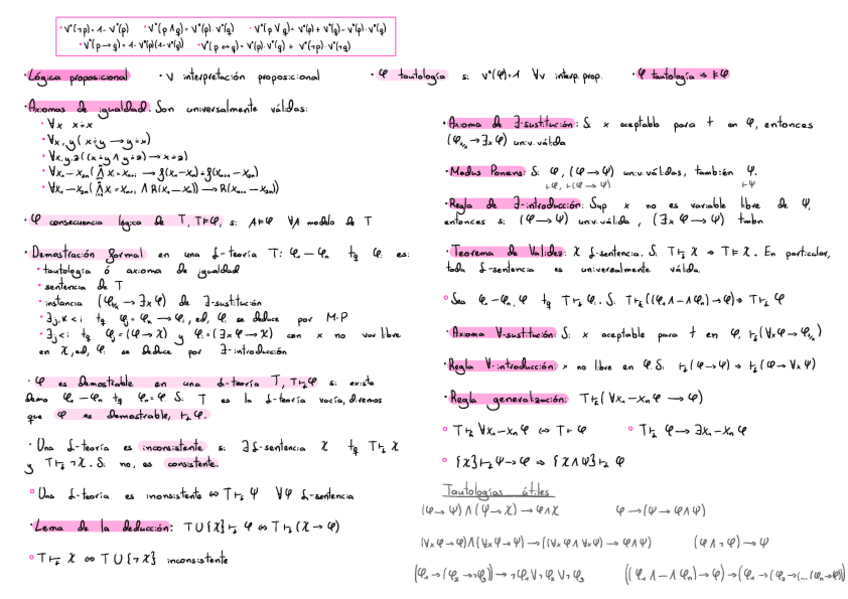 • V*(¬p) = 1 - V*(p) • V*(p ∧ q) = V*(p)·V*(q) • V*(p ∨ q) = V*(p) + V*(q) - V*(p)·V*(q)
• V*(p → q) = 1 - V*(p)(1 - V*(q)) • V*(p ↔ q) = V*(p)·V*(q) + V*(¬p)·V*(¬q)
• Lógica proposicional • V interpretación proposicional • φ tautología si V*(φ)=1 ∀v interp. prop. • φ tautología ⇒ ⊨φ
• Axiomas de igualdad. Son universalmente válidas:
• ∀x x=x
• ∀x,y (x=y → y=x)
• ∀x,y,z ((x=y ∧ y=z) → x=z)
• φ consecuencia lógica de T, T⊨φ, si A⊨φ ∀A modelo de T
• Demostración formal en una L-teoría T: φ₁ — φₙ tq φᵢ es:
• tautología ó axioma de igualdad
• sentencia de T
• instancia (φₜ/ₓ → ∃xφ) de ∃-sustitución
• ∃j,k < i tq φⱼ = φₖ → φᵢ, ed, φᵢ se deduce por M.P
• ∃j<i tq φⱼ = (φ → χ) y φᵢ = (∃xφ → χ) con x no var libre
en χ, ed, φᵢ se deduce por ∃-introducción
• φ es demostrable en una L-teoría T, T⊢φ si existe
demo φ₁ — φₙ tq φₙ = φ. Si T es la L-teoría vacía, diremos
que φ es demostrable, ⊢φ.
• Una L-teoría es inconsistente si ∃ L-sentencia χ tq T⊢χ
y T⊢¬χ. Si no, es consistente.
• Una L-teoría es inconsistente ⇔ T⊢ψ ∀ψ L-sentencia
• Lema de la deducción: T∪{χ}⊢φ ⇔ T⊢(χ → φ)
• T⊢χ ⇔ T∪{¬χ} inconsistente
• Axioma de ∃-sustitución: Si x aceptable para t en φ, entonces
(φₜ/ₓ → ∃xφ) univ. válida
• Modus Ponens: Si φ, (φ → ψ) univ. válidas, también ψ.
⊢φ, ⊢(φ → ψ) ⊢ψ
• Regla de ∃-introducción: Sup x no es variable libre de ψ,
entonces si (φ → ψ) univ. válida, (∃xφ → ψ) tmbn
• Teorema de Validez: χ L-sentencia. Si T⊢χ ⇒ T⊨χ. En particular,
toda L-sentencia es universalmente válida.
• Sea φ₁ — φₙ, φ tq T⊢φᵢ. Si T⊢((φ₁ ∧ — ∧ φₙ) → φ) ⇒ T⊢φ
• Axioma ∀-sustitución: Si x aceptable para t en φ, ⊢(∀xφ → φₜ/ₓ)
• Regla ∀-introducción: x no libre en φ. Si ⊢(φ → ψ) ⇒ ⊢(φ → ∀xψ)
• Regla generalización: T⊢(∀x₁ — xₙφ → φ)
• T⊢∀x₁ — xₙφ ⇔ T⊢φ • T⊢φ → ∃x₁ — xₙφ
• {χ}⊢ψ → φ ⇒ {χ∧ψ}⊢φ
Tautologías útiles
(φ → ψ) ∧ (φ → χ) → ψ∧χ φ → (ψ → φ∧ψ)
(∀xφ → φ) ∧ (∀xψ → ψ) → ((∀xφ ∧ ∀xψ) → φ∧ψ) (φ ∧ ¬φ) → ψ
(φ₁ → (φ₂ → ¬φ₃)) → ¬φ₁ ∨ ¬φ₂ ∨ ¬φ₃ ((φ₁ ∧ — ∧ φₙ) → φ) → (φ₁ → (φ₂ → (... (φₙ → φ))